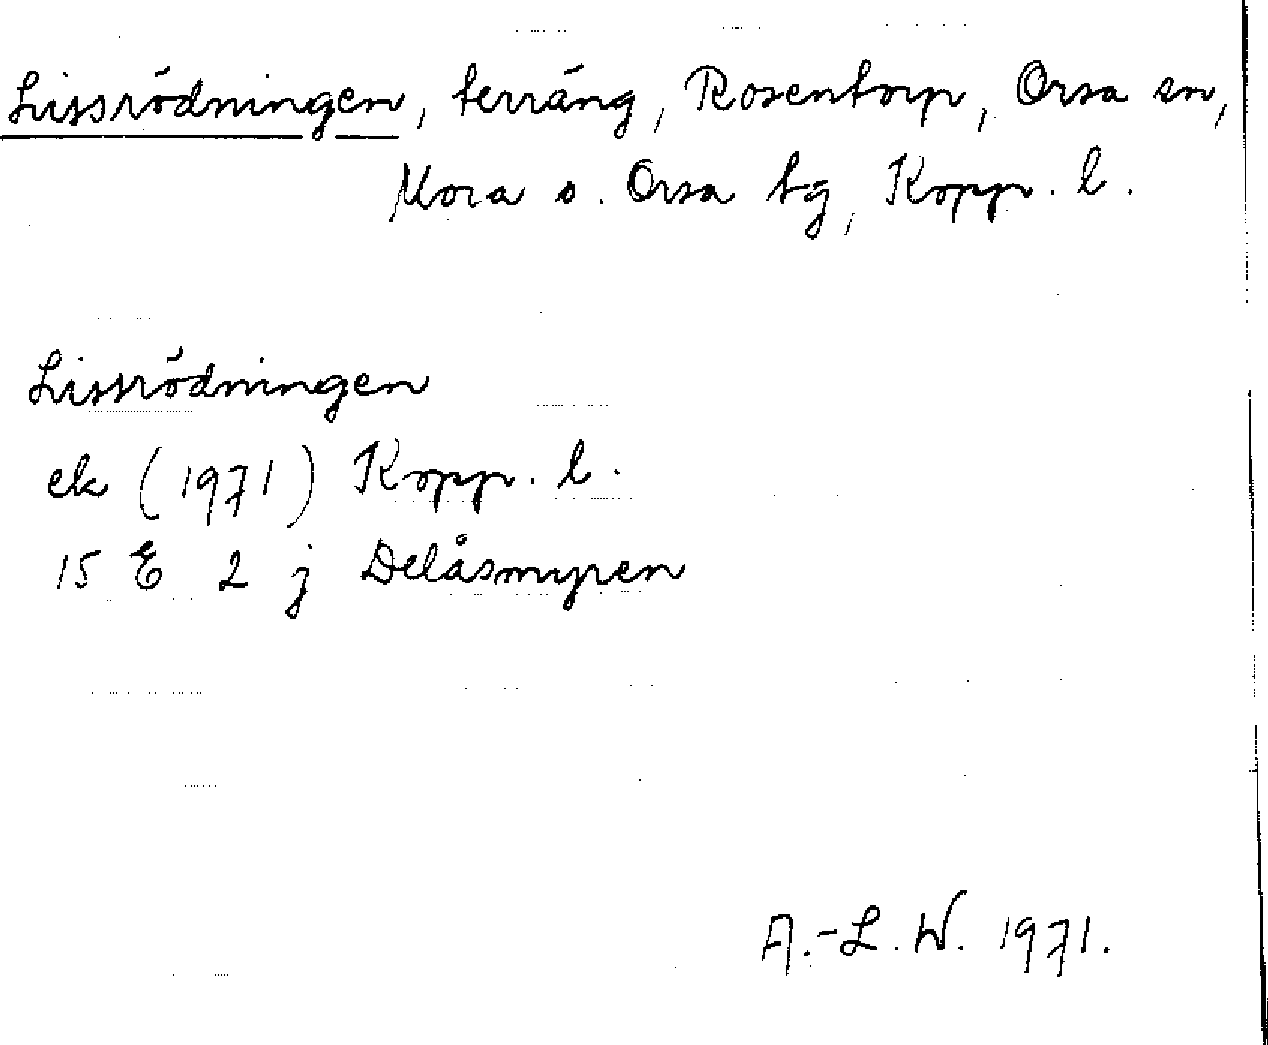 Lissrödningen, terräng, Rosentorp, Orsa sn,
Mora o. Orsa tg, Kopp. l.
Lissrödningen
ek (1971) Kopp. l.
15 E 2 j Delåsmyren
A.-L. W. 1971.